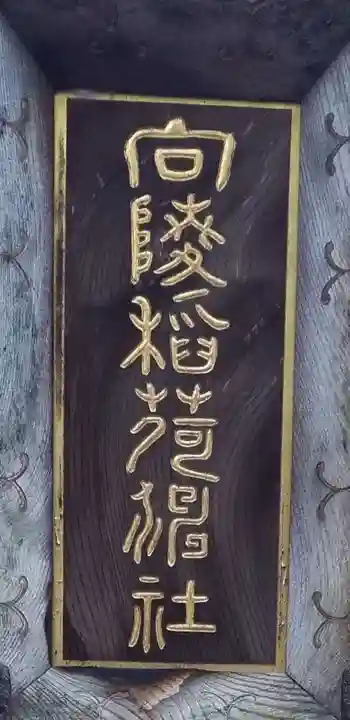 向陵稲荷神社